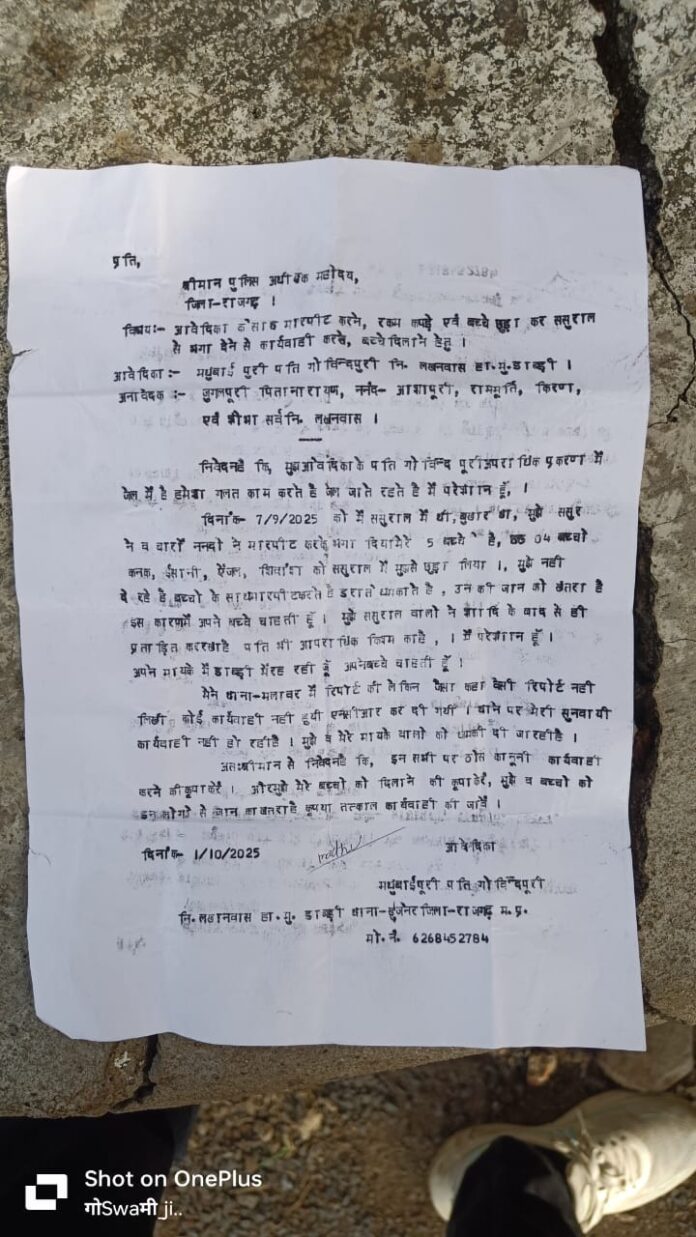 प्रति,
श्रीमान पुलिस अधीक्षक महोदय,
जिला-राजगढ़ ।
विषय:- आवेदिका के साथ मारपीट करने, रकम कपड़े एवं बच्चे छुड़ा कर ससुराल
से भगा देने से कार्यवाही करने, बच्चे दिलाने हेतु ।
आवेदिका:- मधुबाई पुरी पति गोविन्दपुरी नि. लखनवास हा.मु.डाब्ड़ी ।
अनावेदक :- जुगलपुरी पितानारायण, ननंद- आशापुरी, राममूर्ति, किरण,
एवं शोभा सर्वनि. लखनवास ।
निवेदनहै कि, मुझआवेदिकाके पति गोविन्द पूरीअपराधिक प्रकरण में
जेल में है हमेशा गलत काम करते है जेल जाते रहते है मैं परेशान हूँ, ।
दिनांक- 7/9/2025 को मैं ससुराल में थी,बुखार था, मुझे ससुर
ने व चारों ननदो ने मारपीट करके भगा दियामेरे 5 बच्चे है, 04 बच्चो
कनक, ईसानी, ऐंजल, शिवांश को ससुराल में मुझसे छुड़ा लिया ।, मुझे नही
दे रहे है बच्चो के साथमारपीटकरते है डराते धमकाते है , उनकी जान को खतरा है
इस कारणमैं अपने बच्चे चाहती हूँ । मुझे ससुराल वालो ने शादि के बाद से ही
प्रताड़ित कररखाहै पति भी आपराधिक किस्म काहै , । मैं परेशान हूँ ।
अपने मायके में डाब्ड़ी मेंरह रही हूँ अपनेबच्चे चाहती हूँ ।
मैंने थाना-मलावर में रिपोर्ट की लेकिन जैसा कहा वैसी रिपोर्ट नही
लिखी कोई कार्यवाही नही हुयी एनसीआर कर दी गयी । थाने पर मेरी सुनवायी
कार्यवाही नही हो रहीहै । मुझे व मेरे मायके वालो को धमकी दी जारहीहै ।
अतःश्रीमान से निवेदनहै कि, इन सभी पर ठोस कानूनी कार्यवाही
करने कीकृपाकरें । औरमुझे मेरे बच्चों को दिलाने की कृपाकरें, मुझे व बच्चो को
इन लोगो से जान काखतराहै कृपया तत्काल कार्यवाही की जावें ।
दिनांक- 1/10/2025 आवेदिका
मधुबाईपूरी पति गोविन्दपूरी
नि.लखनवास हा.मु. डाब्ड़ी थाना-खुजनेर जिला-राजगढ़ म.प्र.
मो.नं. 6268452784
Shot on OnePlus
गोSwaमी ji..